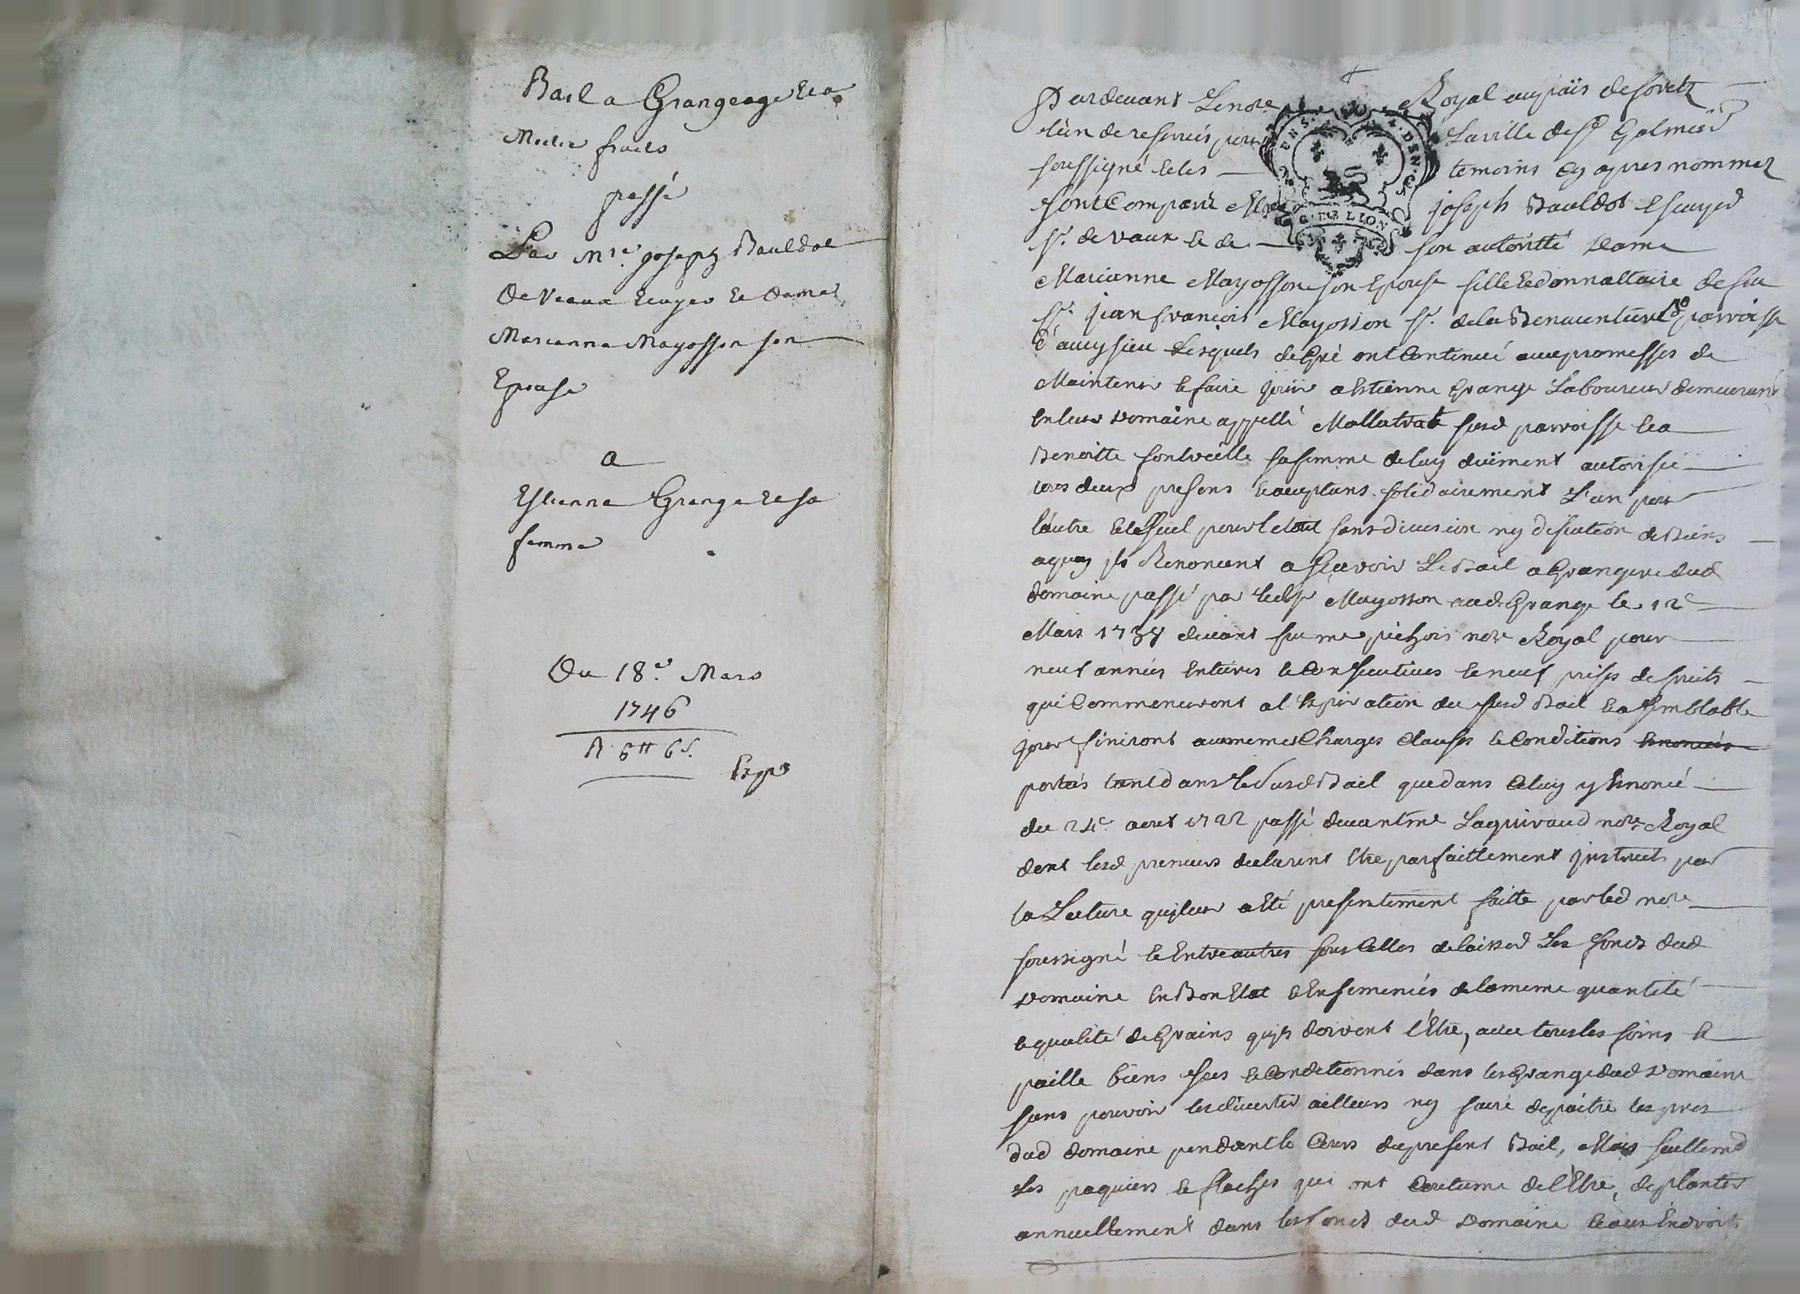 Bail a Grangeage et a
Mitie fruits
passé
Par Mre. joseph Bauldot
De Veaux Ecuyer et dame
Marianne Mayosson son
Epouse
a
Estienne Grange et sa
femme
Du 18e. Mars
1746
R 6tt 6s.
Exp
Pardevant Le nore Royal au païs de forest
l'un de reservés pour La ville de St Galmier
soussigné et les temoins cy apres nommez
sont Comparu Mre joseph Bauldot Escuyer
sr. de vaux et de son autorité dame
Marianne Mayosson son Epouse fille et donnattaire de feu
sr. jean françois Mayosson sr. de la Benaventure pd parroisse
d'aveysieu Lesquels de gré ont Continué avec promesses de
Maintenir et faire jouir a Estienne Grange Laboureur demeurant
en leur Domaine appellé Mallatrat susd parroisse et a
Benoitte fontvieille sa femme de luy duëment autorisée
tous deux presens et acceptans solidairement L'un pour
lautre et le seul pour le tout sans division ny discution de Biens
a quoy ils Renoncent a sçavoir Le Bail a Grangere dud
domaine passé par led sr Mayosson aud Grange le 12e
Mars 1738 devant feu me pichois nore Royal pour
neuf années entieres et Consecutives et neuf prises de fruits
qui Commenceront a l'expiration du susd Bail et a semblable
jour finiront aux memes Charges Clauses et Conditions enoncées
portées tant dans Le susd Bail que dans Celuy y enoncé
du 24e aoust 1722 passé devant me Laquivaud nore Royal
dont lesd preneurs declarent etre parfaittement instruits par
la Lecture qui leur a eté presentement faitte par led nore
soussigné et entre autres sous Celles de laisser Les fonds dud
Domaine en Bon Etat et Ensemencés de la meme quantité
et qualité de Grains qu'ils doivent l'Etre, avec tous les foins et
paille biens secs et Conditionnés dans les Grange dud Domaine
sans pouvoir les divertir ailleurs ny faire depaitre les pres
dud domaine pendant le Cours du present Bail, Mais seullemt
Les paquiers et flaches qui ont Coutume de l'Etre, de planter
annuellement dans les fonds dud Domaine et aux Endroits